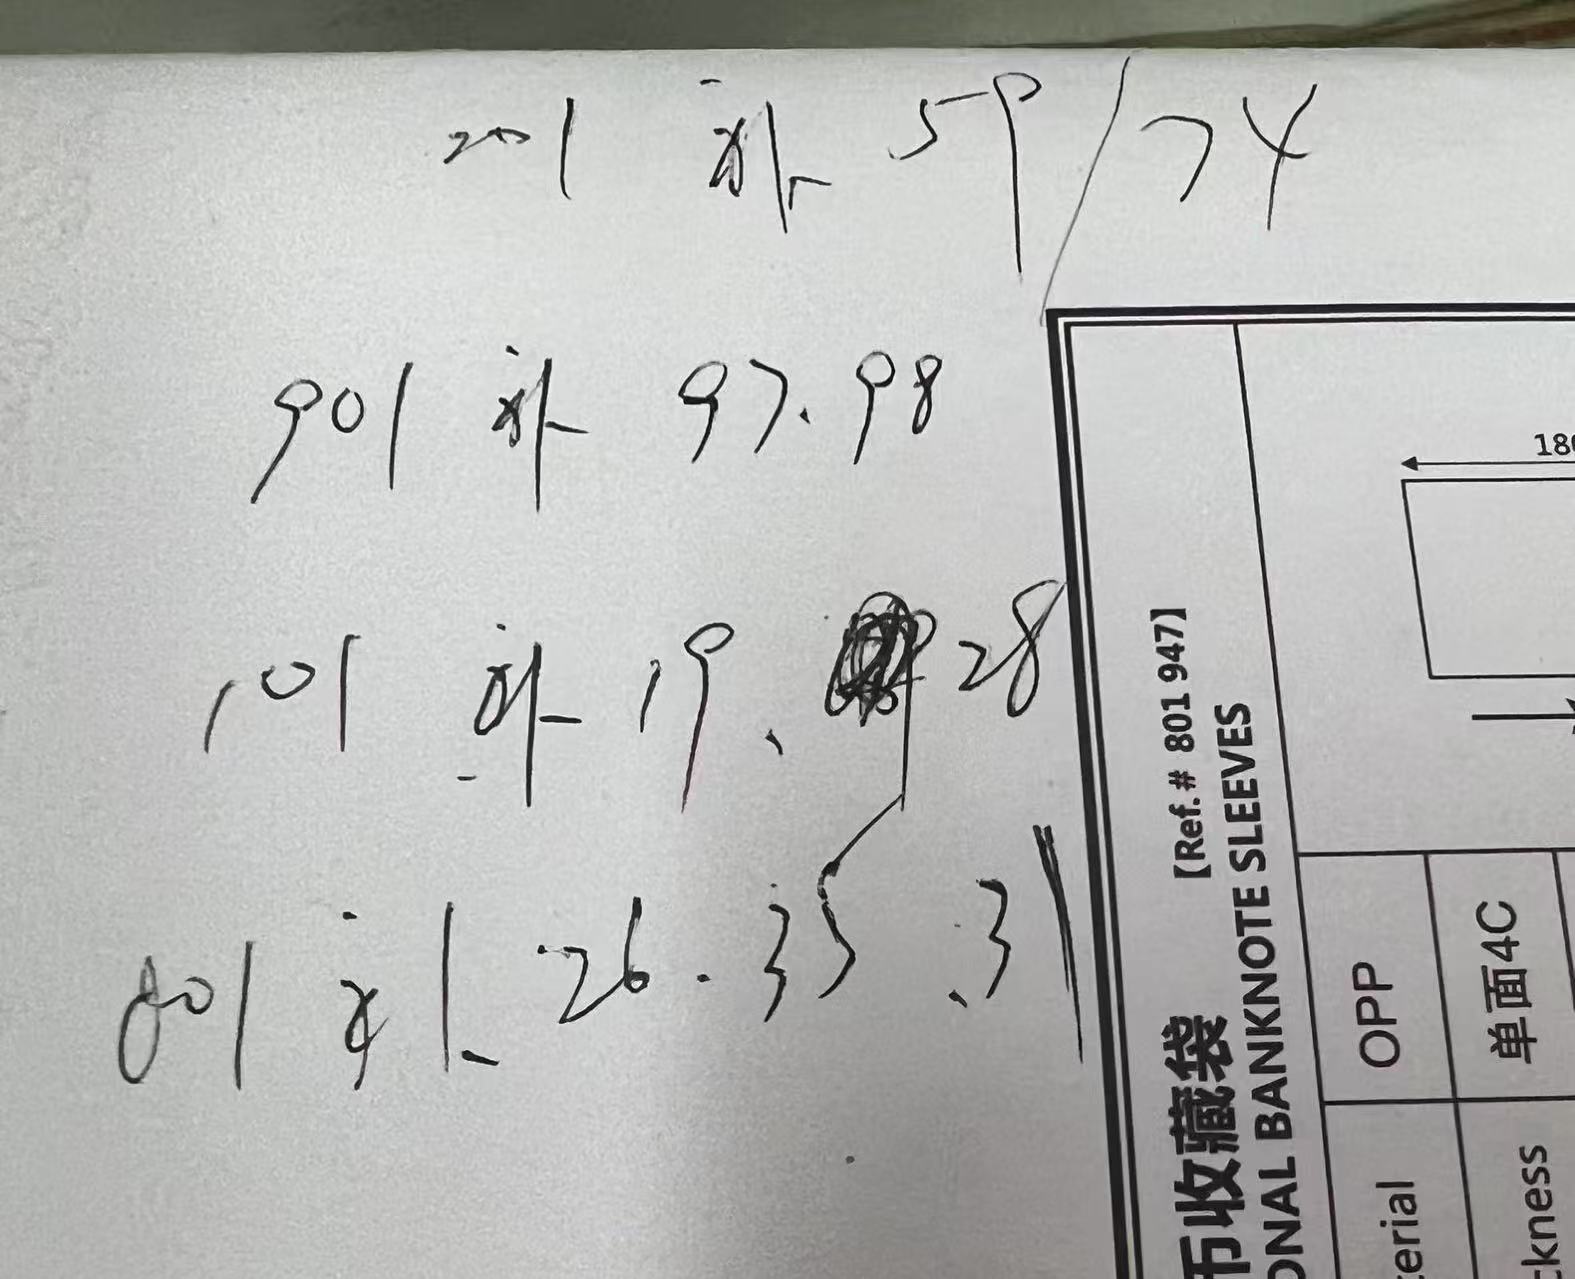 201 补 59/74
901 补 97.98
101 补 19、28
801 补 26.35.31
180
【Ref.# 801 947】
ONAL BANKNOTE SLEEVES
币收藏袋
OPP
单面4C
terial
ckness